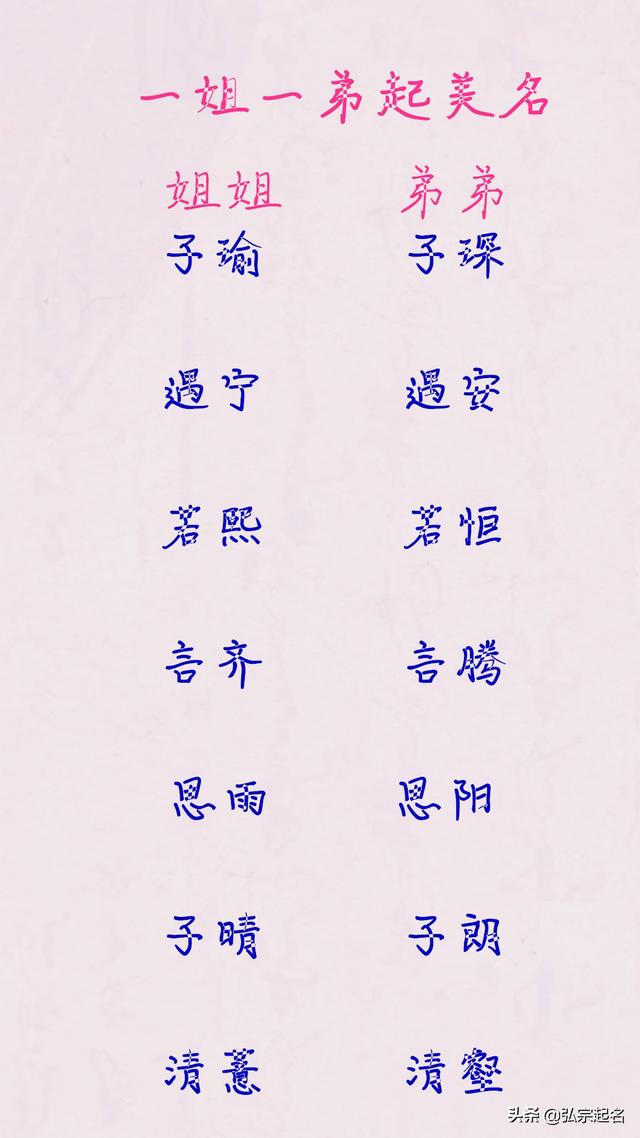 一姐一弟起美名
姐姐 弟弟
子瑜 子琛
遇宁 遇安
若熙 若恒
言齐 言腾
思雨 思阳
子晴 子朗
清薏 清壑
头条 @弘宗起名